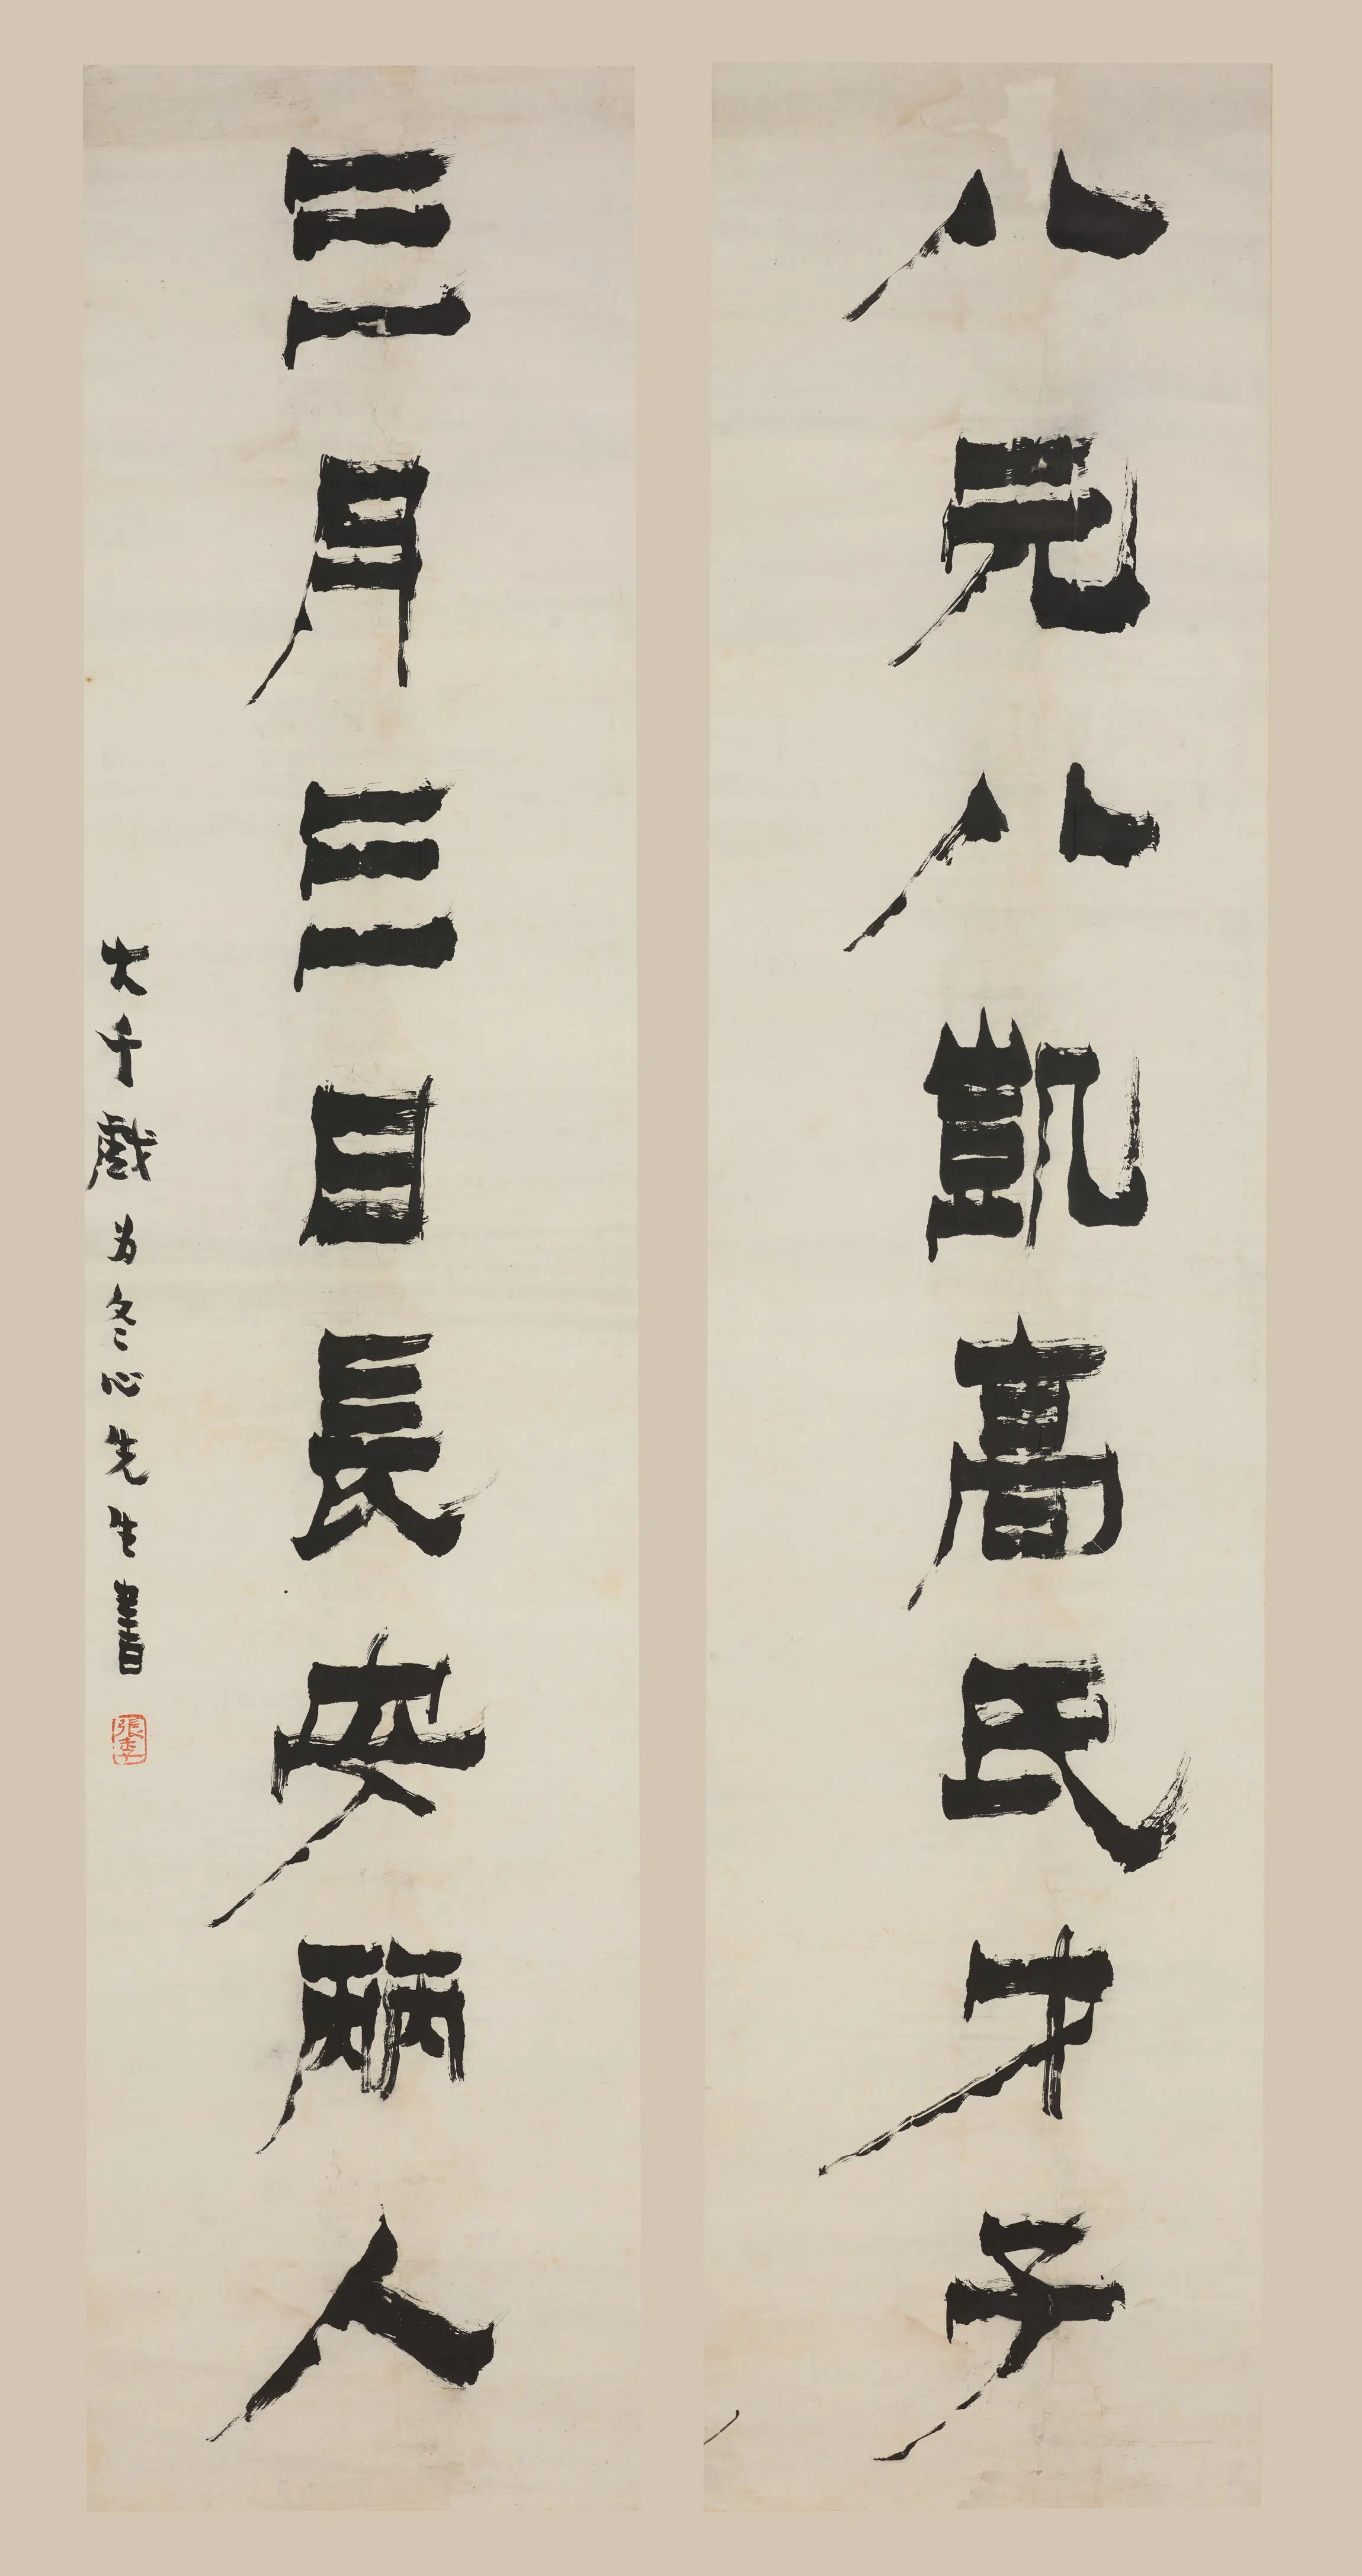 八元八凱高氏才子
三月三日長安丽人
大千戲为冬心先生書
張季